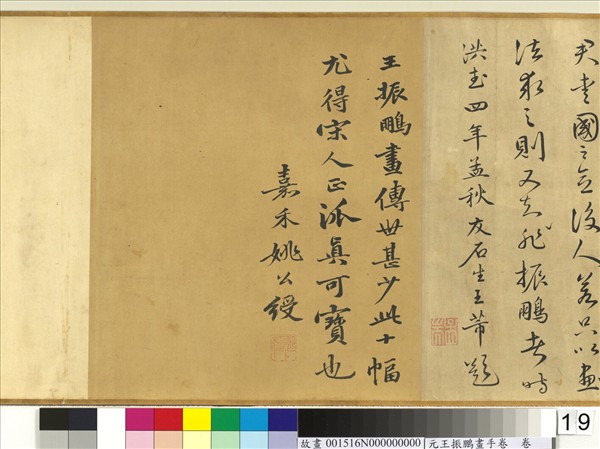 君。國之後人若只以畫
法求之則又豈知振鵬者哉時
洪武四年孟秋友石生王芾題
王振鵬畫傳世甚少此十幅
尤得宋人正派真可寶也
嘉禾姚公綬
19
故畫 001516N000000000 元王振鵬畫手卷 卷